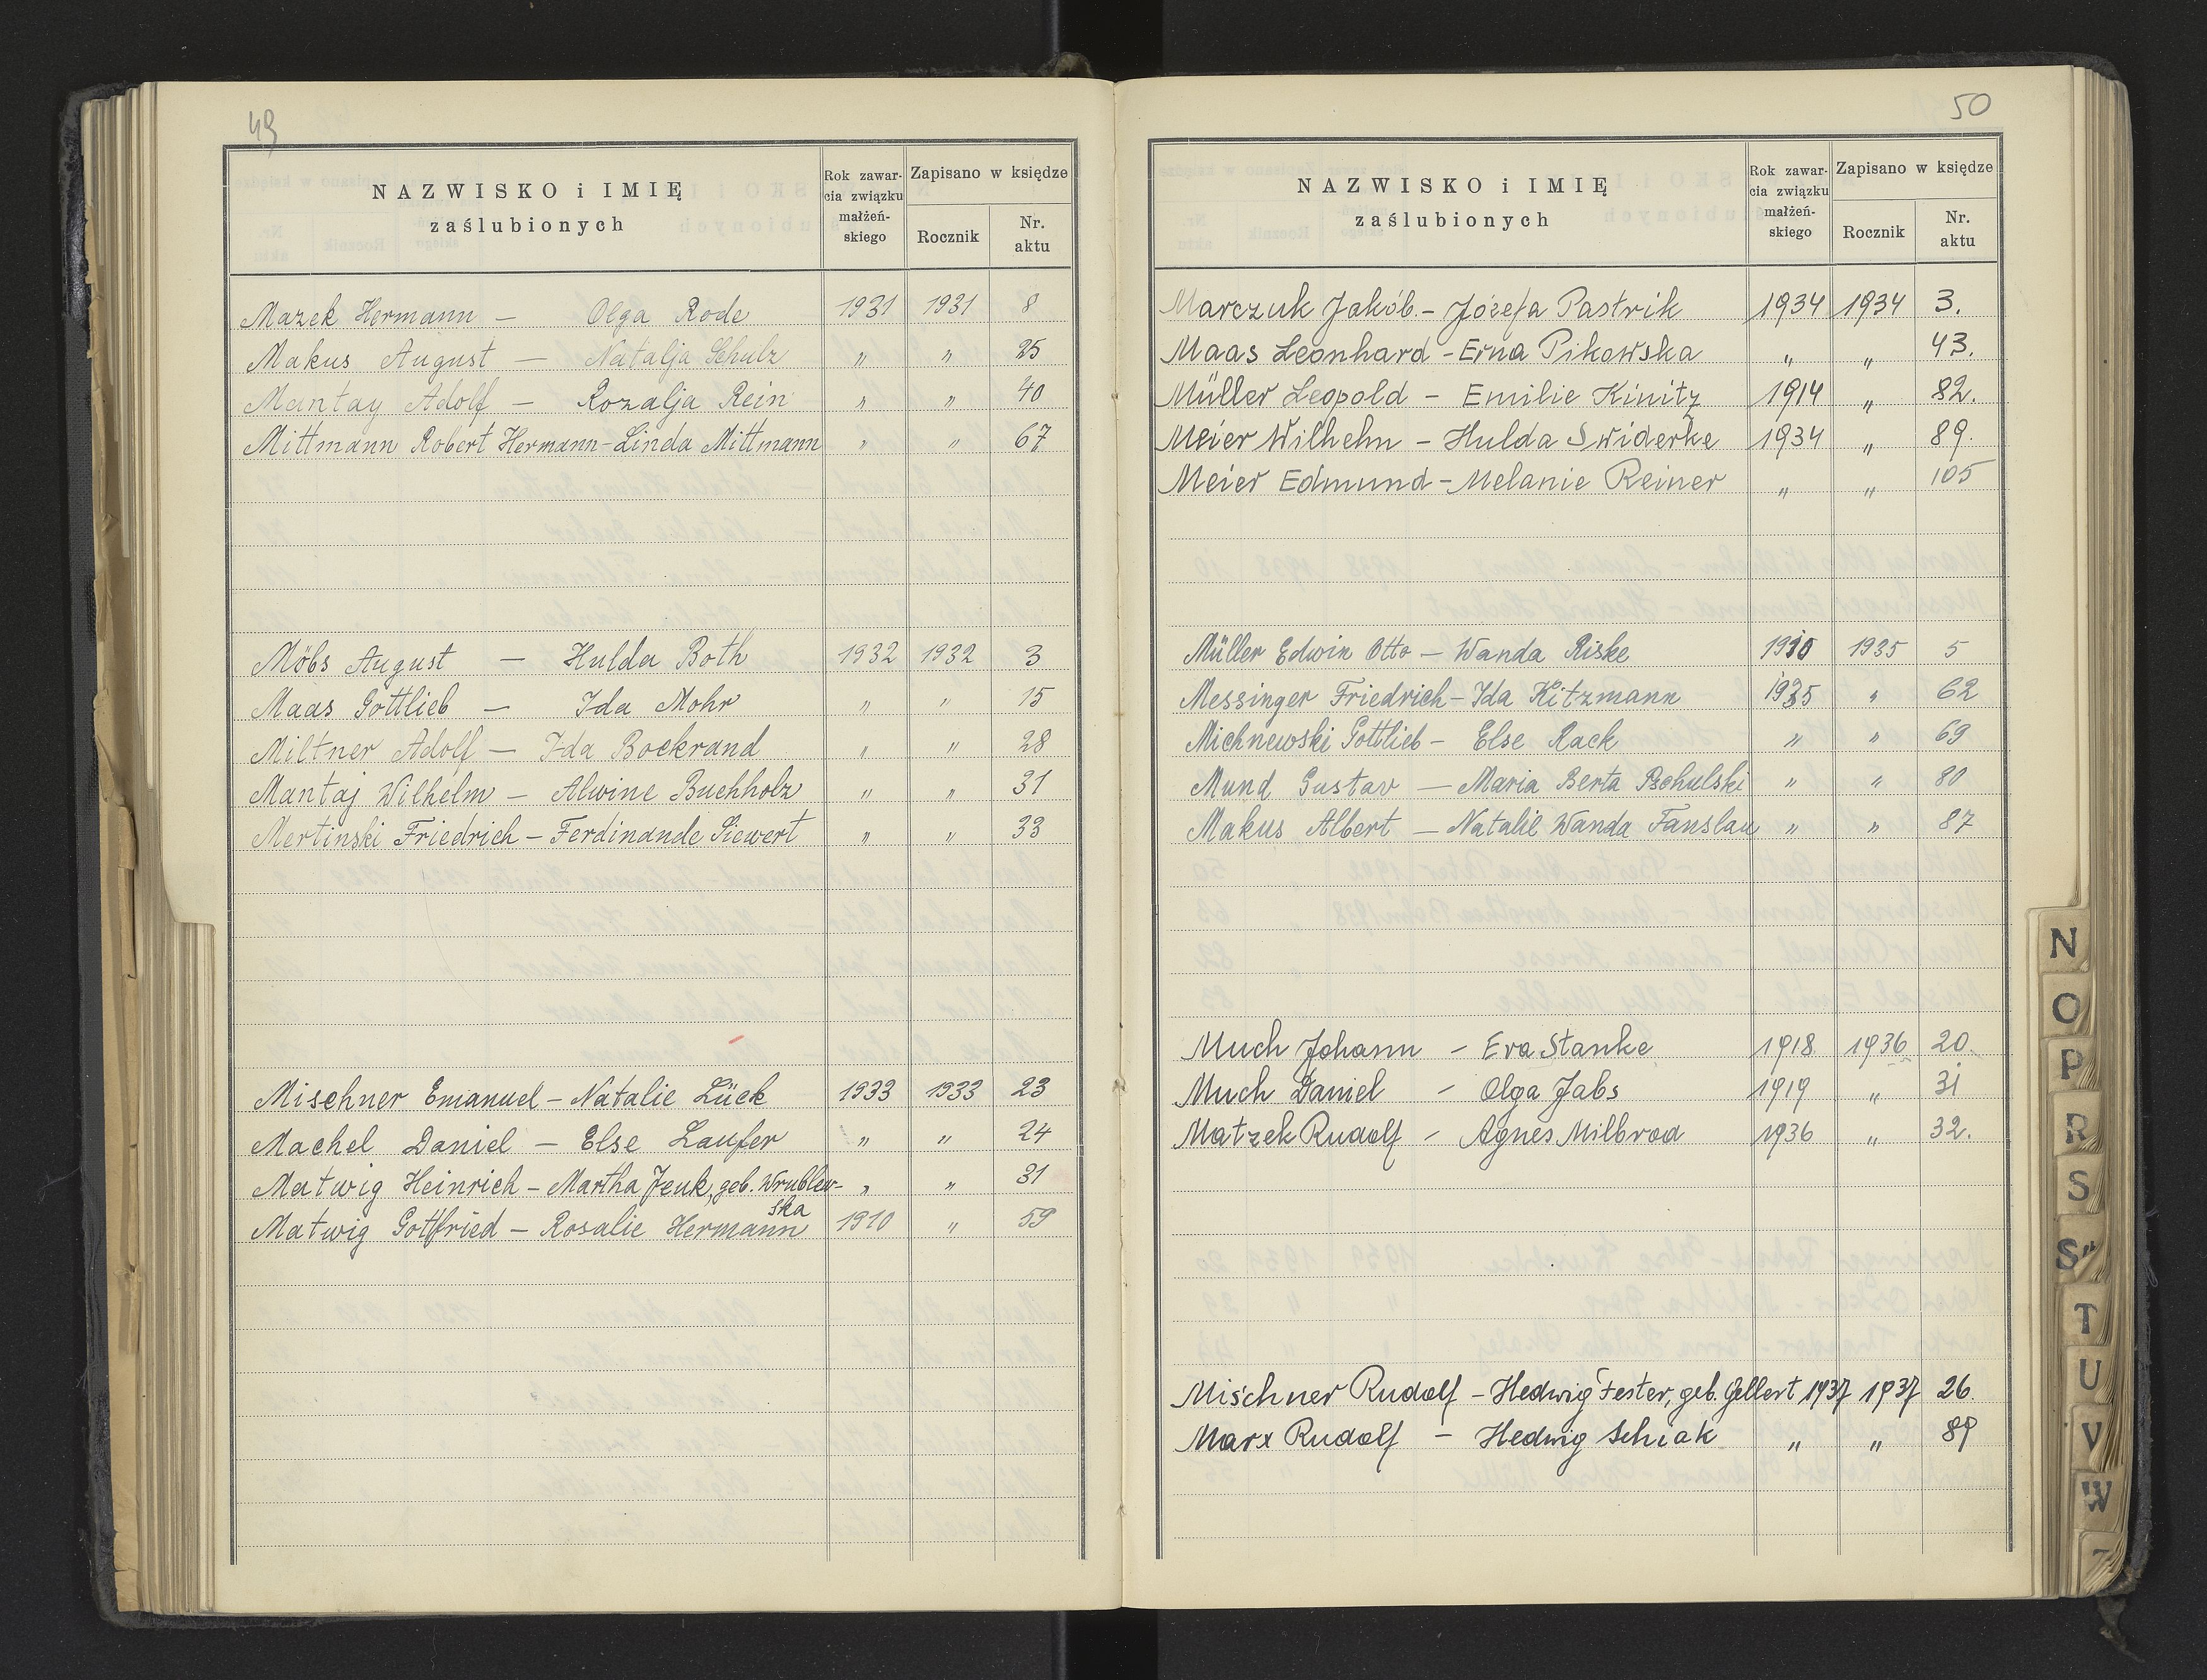 49
NAZWISKO i IMIĘ
zaślubionych
Rok zawar-
cia związku
małżeń-
skiego
Zapisano w księdze
Rocznik
Nr.
aktu
Mazek Hermann — Olga Rode 1931 1931 8
Makus August — Natalja Schulz " " 25
Mantay Adolf — Rozalja Rein " " 40
Mittmann Robert Hermann - Linda Mittmann " " 67
Möbs August — Hulda Both 1932 1932 3
Maas Gottlieb — Ida Mohr " " 15
Miltner Adolf — Ida Bockrand " " 28
Mantaj Wilhelm — Alwine Buchholz " " 31
Mertinski Friedrich — Ferdinande Siewert " " 33
Mischner Emanuel — Natalie Lück 1933 1933 23
Machel Daniel — Else Laufer " " 24
Matwig Heinrich — Martha Jeuk, geb. Wrublew- " " 31
ska
Matwig Gottfried — Rosalie Hermann 1910 " 59
50
NAZWISKO i IMIĘ
zaślubionych
Rok zawar-
cia związku
małżeń-
skiego
Zapisano w księdze
Rocznik
Nr.
aktu
Marczuk Jakób. - Józefa Pastrik 1934 1934 3.
Maas Leonhard - Erna Pikowska " " 43.
Müller Leopold - Emilie Kinitz 1914 " 82.
Meier Wilhelm - Hulda Swiderke 1934 " 89.
Meier Edmund - Melanie Reiner " " 105
Müller Edwin Otto — Wanda Riske 1930 1935 5
Messinger Friedrich - Ida Kitzmann 1935 " 62
Michnewski Gottlieb - Else Rack " " 69
Mund Gustav — Maria Berta Pschulski " " 80
Makus Albert — Natalie Wanda Fanslau " " 87
Much Johann - Eva Stanke 1918 1936 20.
Much Daniel - Olga Jabs 1919 " 31
Matzek Rudolf - Agnes Milbrod 1936 " 32.
Mischner Rudolf - Hedwig Fester, geb. Gellert 1937 1937 26.
Marx Rudolf - Hedwig Schiak " " 89
N
O
P
R
S
Ś
T
U
V
W
Z